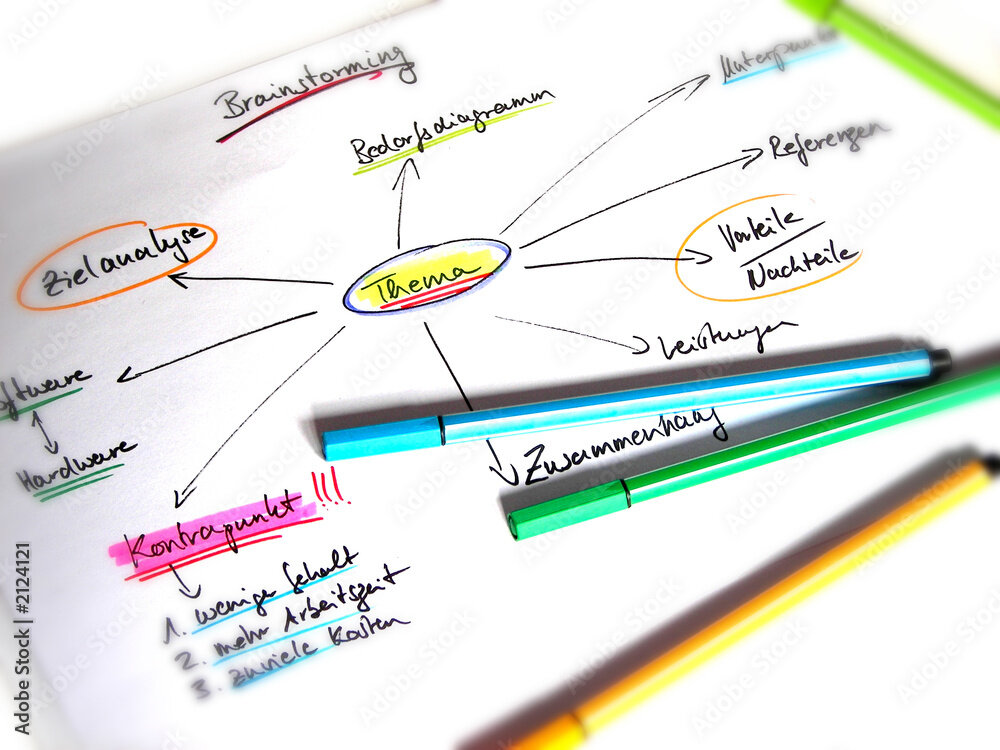 Brainstorming
Bedarfsdiagramm
Unterpunkt
Referenzen
Zielanalyse
Thema
Vorteile
Nachteile
Leistungen
Software
Hardware
Zusammenhang
Kontrapunkt !!!
1. weniger Gehalt
2. mehr Arbeitszeit
3. zuviele Kosten
Adobe Stock | #2124121